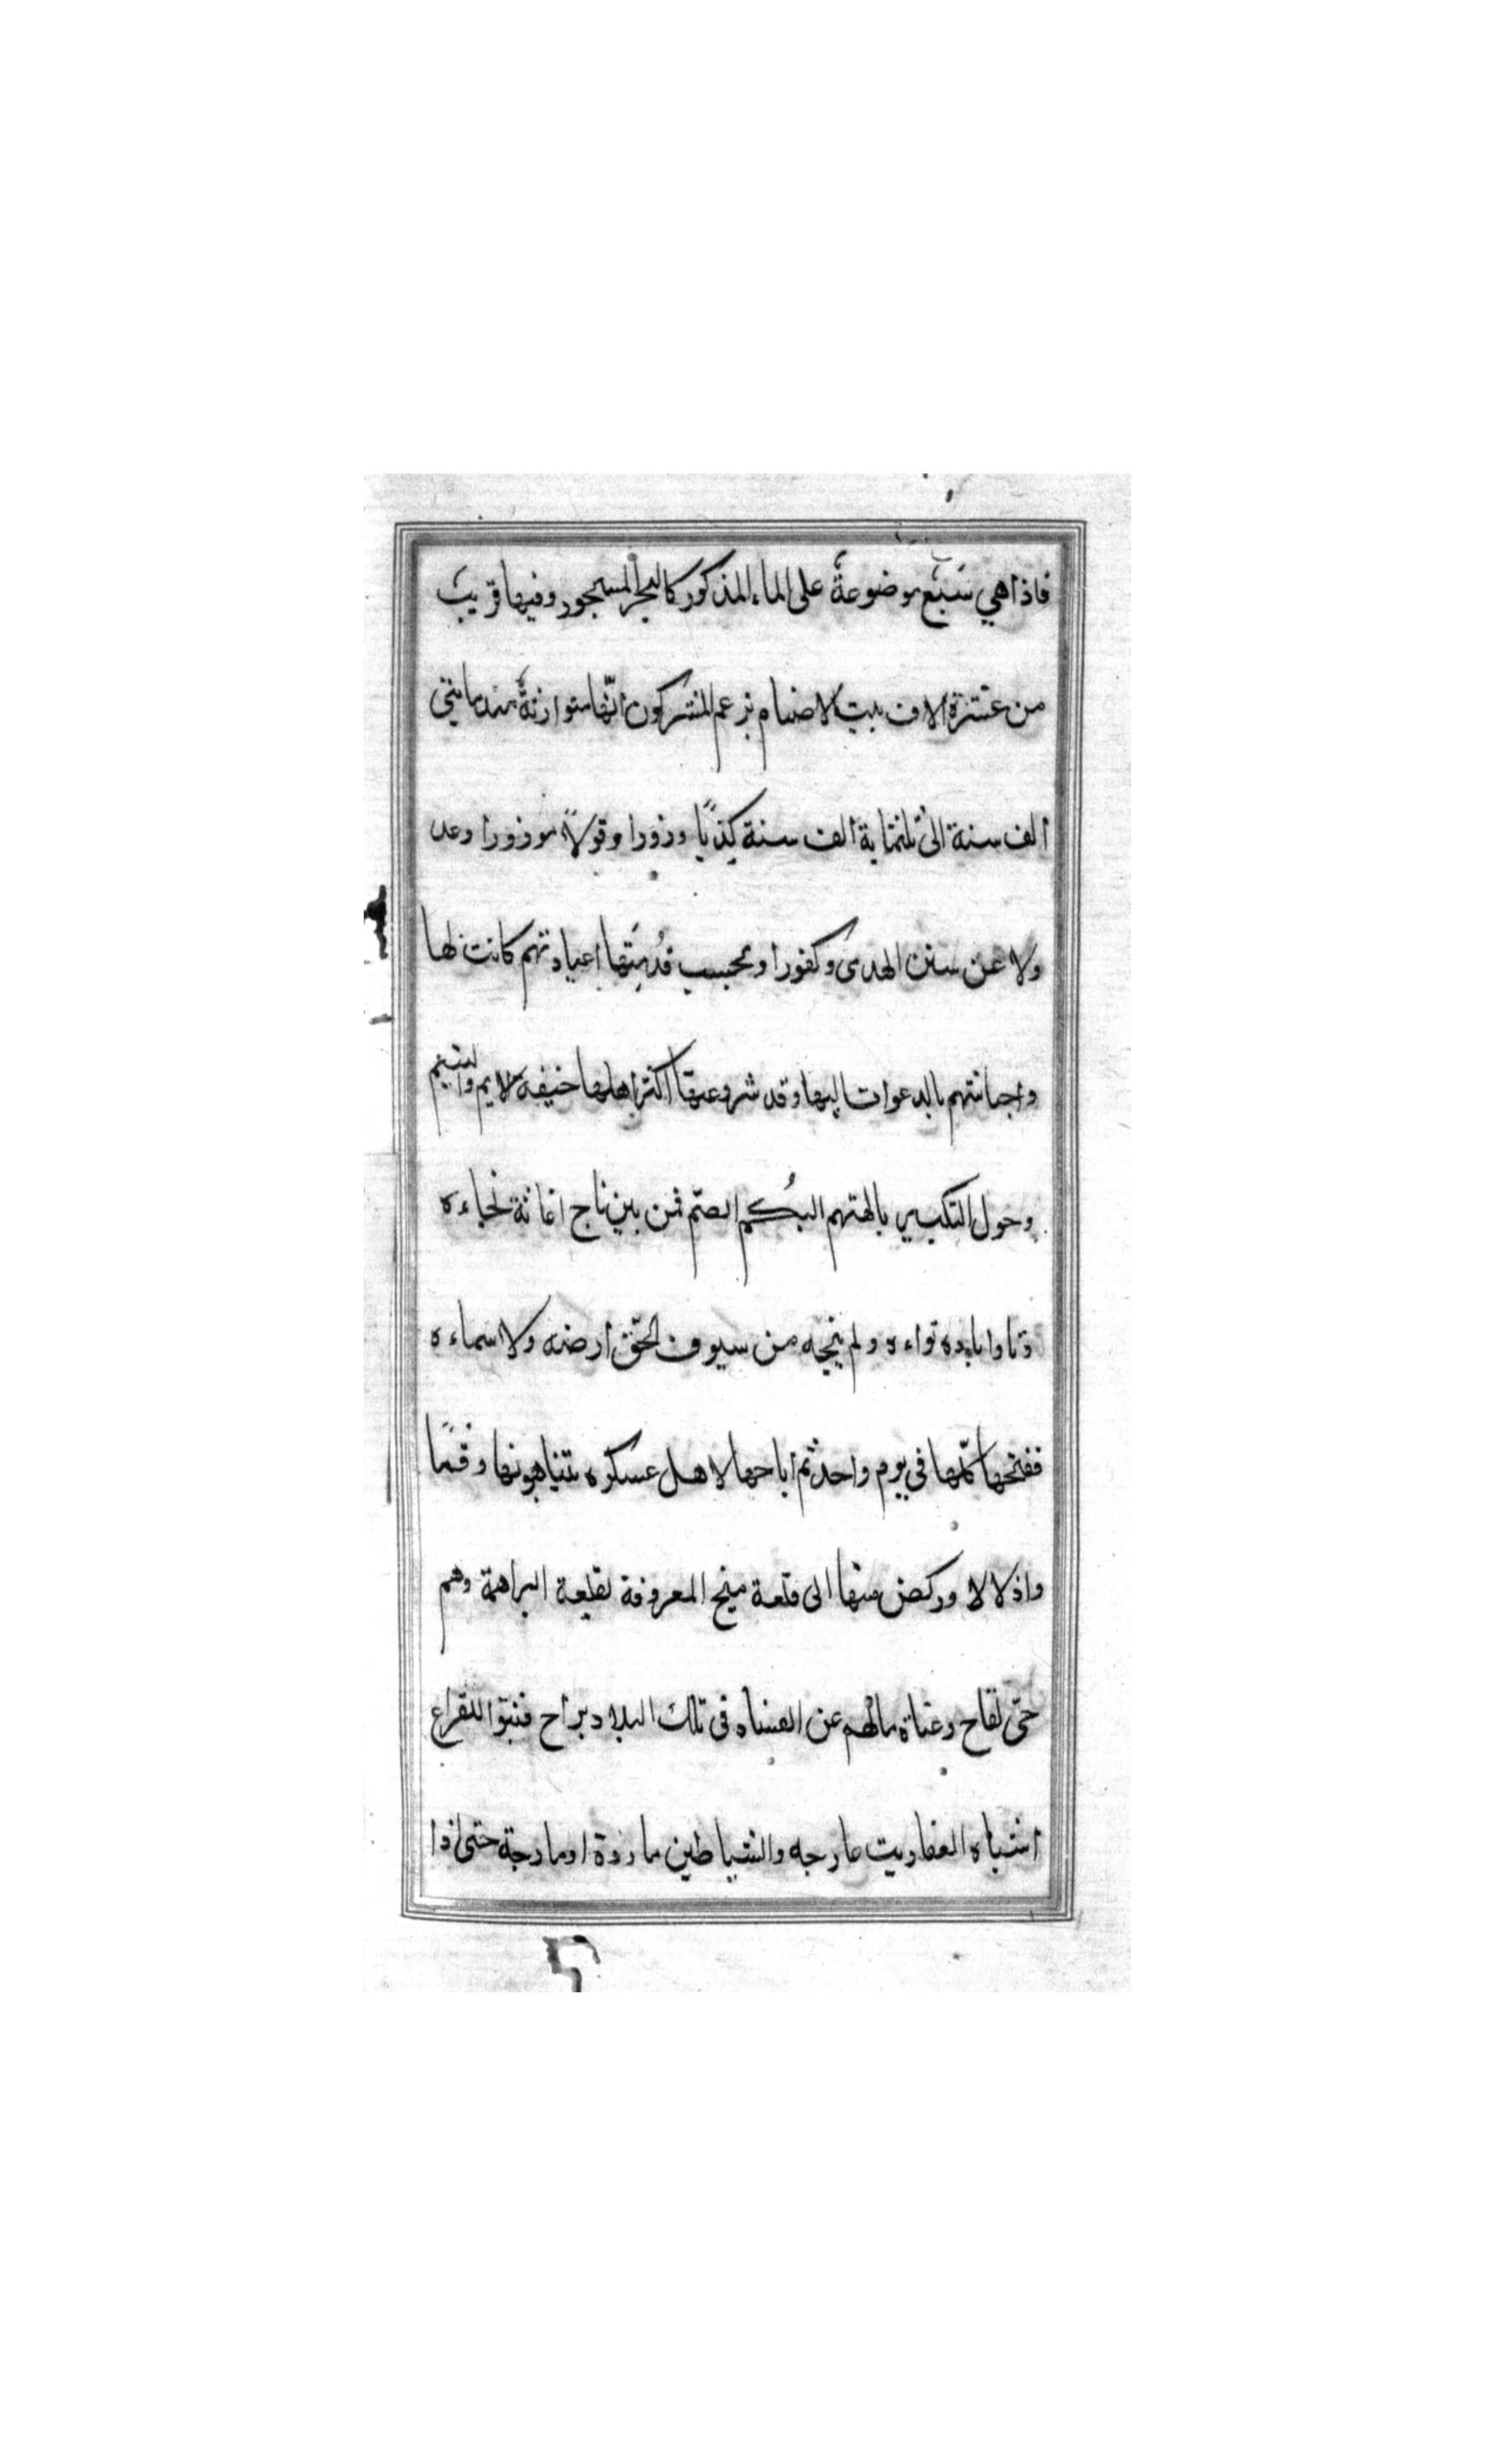 فاذا هي سَبْع موضوعةً على الماء المذكور كالبحر المسجور وفيها قريبٌ
من عشرة الاف بيت لاصنام يزعم المشركون انّها متوارثةٌ منذ مايتي
الف سنة الى ثلثماية الف سنة كِذبًا وزورا وقولاً موزورا وعد
ولا عن سنن الهدى وكفورا وبحسب قُدمتها عبادتهم كانت لها
واجهانتهم بالدعوات اليها وقد شرد عنها اكثر اهلها خيفة الايم واليتيم
وحول التكبير بالهتهم البُكم الصمّ فمن بين ناج اغاثة نجاءه
وثاو اباده ثواءه ولم ينجه من سيوف الحقّ ارضه ولا سماءه
ففتحها كلّها في يوم واحد ثم اباحها لاهل عسكره يتناهبونها وقمًا
واذلالا وركض منها الى قلعة منيح المعروفة لقلعة البراهمة وهم
حيّ لقاح وعتاة مالهم عن الفساد في تلك البلاد براح فثبتوا للقراع
اشباه العفاريت عارجه والشياطين ماردة او مارجة حتى اذا